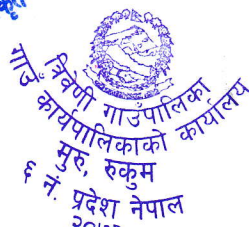 त्रिवेणी गाउँपालिका
गाउँ कार्यपालिकाको कार्यालय
मुरु, रुकुम
६ नं. प्रदेश नेपाल